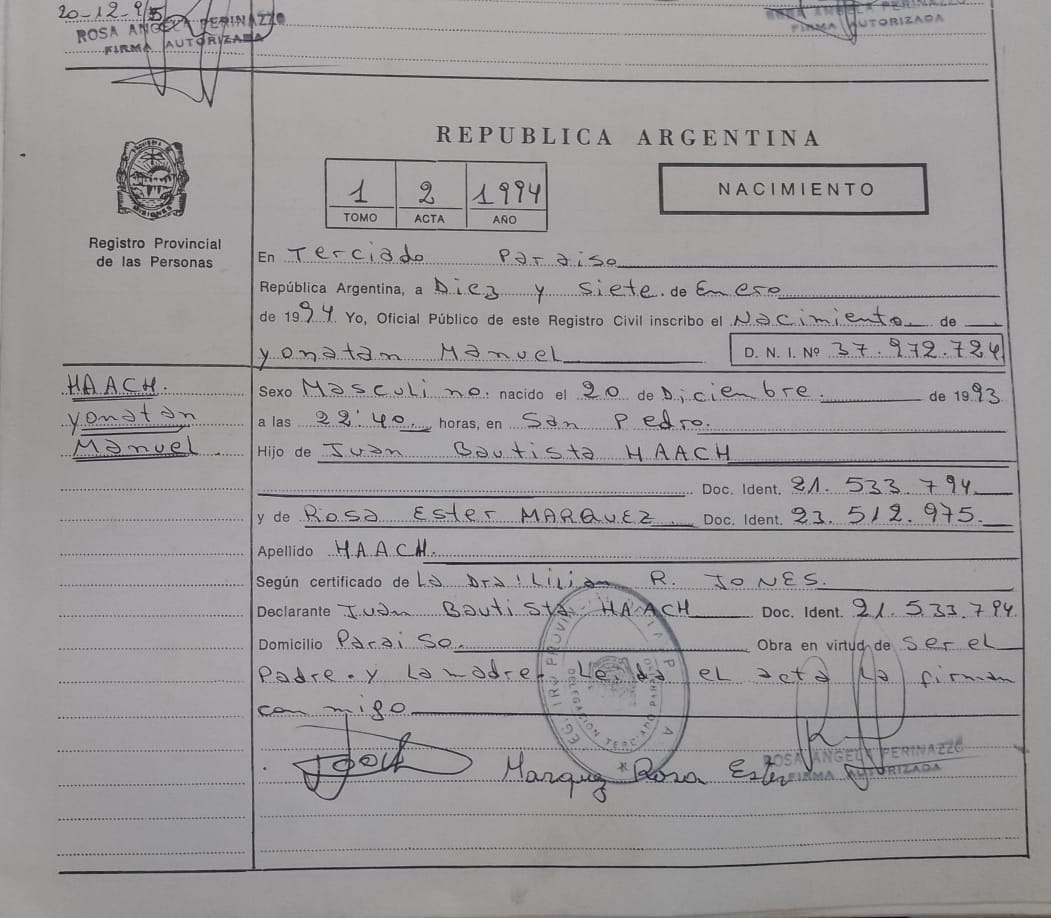 20-12-95
ROSA ANGELA PERINAZZO
FIRMA AUTORIZADA
ROSA ANGELA PERINAZZO
FIRMA AUTORIZADA
REPUBLICA ARGENTINA
1 2 1994
TOMO ACTA AÑO
NACIMIENTO
MISIONES
Registro Provincial
de las Personas
En Terciado Paraiso
República Argentina, a Diez y siete. de Enero
de 1994. Yo, Oficial Público de este Registro Civil inscribo el Nacimiento de
yonatan Manuel D. N. I. Nº 37.972.724
HAACH.
yonatan
Manuel
Sexo Masculino. nacido el 20 de Diciembre. de 1993
a las 22:40 horas, en San Pedro.
Hijo de Juan Bautista HAACH
Doc. Ident. 21. 533. 794.
y de Rosa Ester MARQUEZ Doc. Ident. 23. 512. 975.
Apellido HAACH.
Según certificado de La Dra: Lilian R. JONES.
Declarante Juan Bautista HAACH Doc. Ident. 21. 533. 794.
Domicilio Paraiso. Obra en virtud de ser el
Padre. y La madre. Leida el acta La firman
con migo
Marquez Rosa Ester
ROSA ANGELA PERINAZZO
FIRMA AUTORIZADA
DELEGACION TERCIADO PARAISO